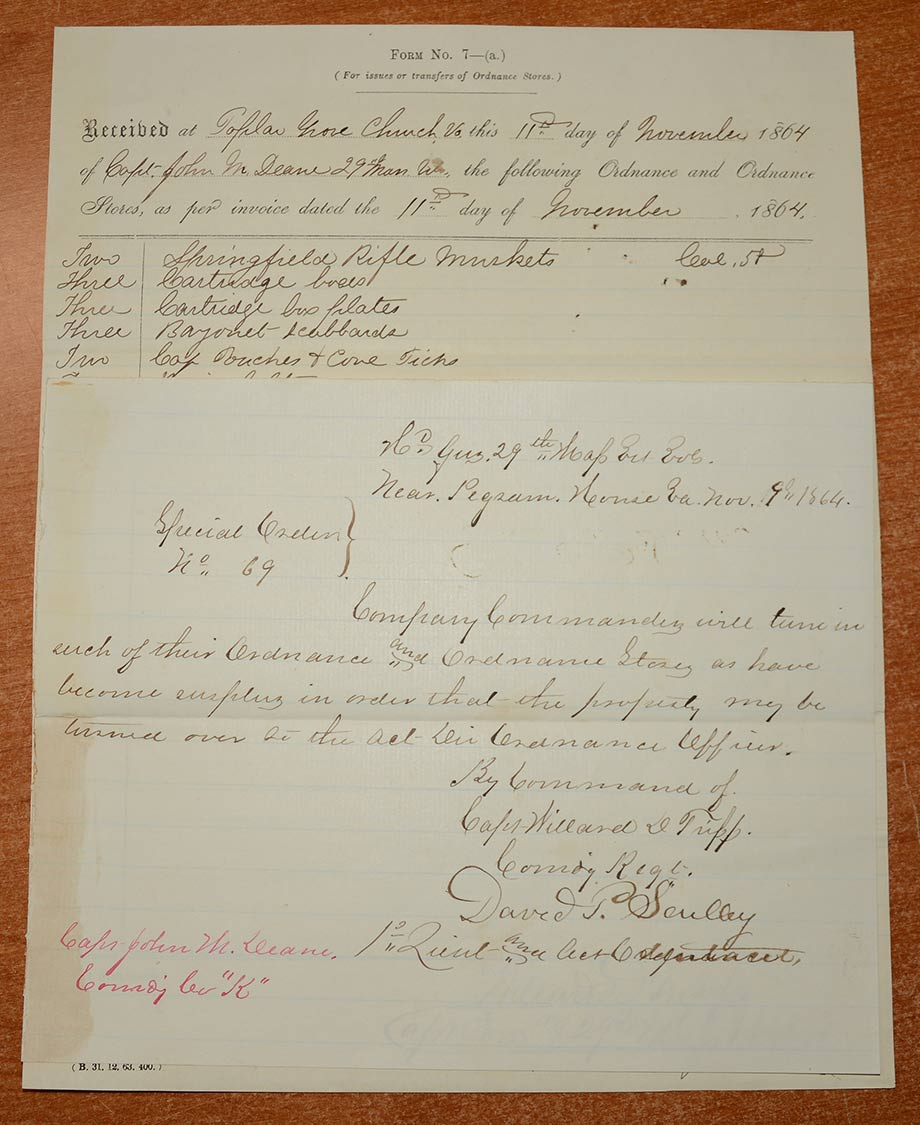 FORM No. 7—(a.)
(For issues or transfers of Ordnance Stores.)
Received at Poplar Grove Church Va this 11th day of November 1864
of Capt. John M. Deane 29th Mass. Vols., the following Ordnance and Ordnance
Stores, as per invoice dated the 11th day of November 1864.
Two Springfield Rifle Muskets Cal .58
Three Cartridge boxes
Three Cartridge box plates
Three Bayonet scabbards
Two Cap Pouches & Cone Picks
Hd Qrs. 29th Mass Vet Vols.
Near. Pegram. House Va. Nov. 9th 1864.
Special Orders
No. 69
Company Commanders will turn in
such of their Ordnance and Ordnance Stores as have
become surplus in order that the property may be
turned over to the Act Div Ordnance Officer.
By Command of.
Capt Willard D Tripp.
Comdg Regt.
David P. Scully
1st Lieut and Act
Capt John M. Deane.
Comdg Co "K"
(B. 31. 12. 63. 400.)